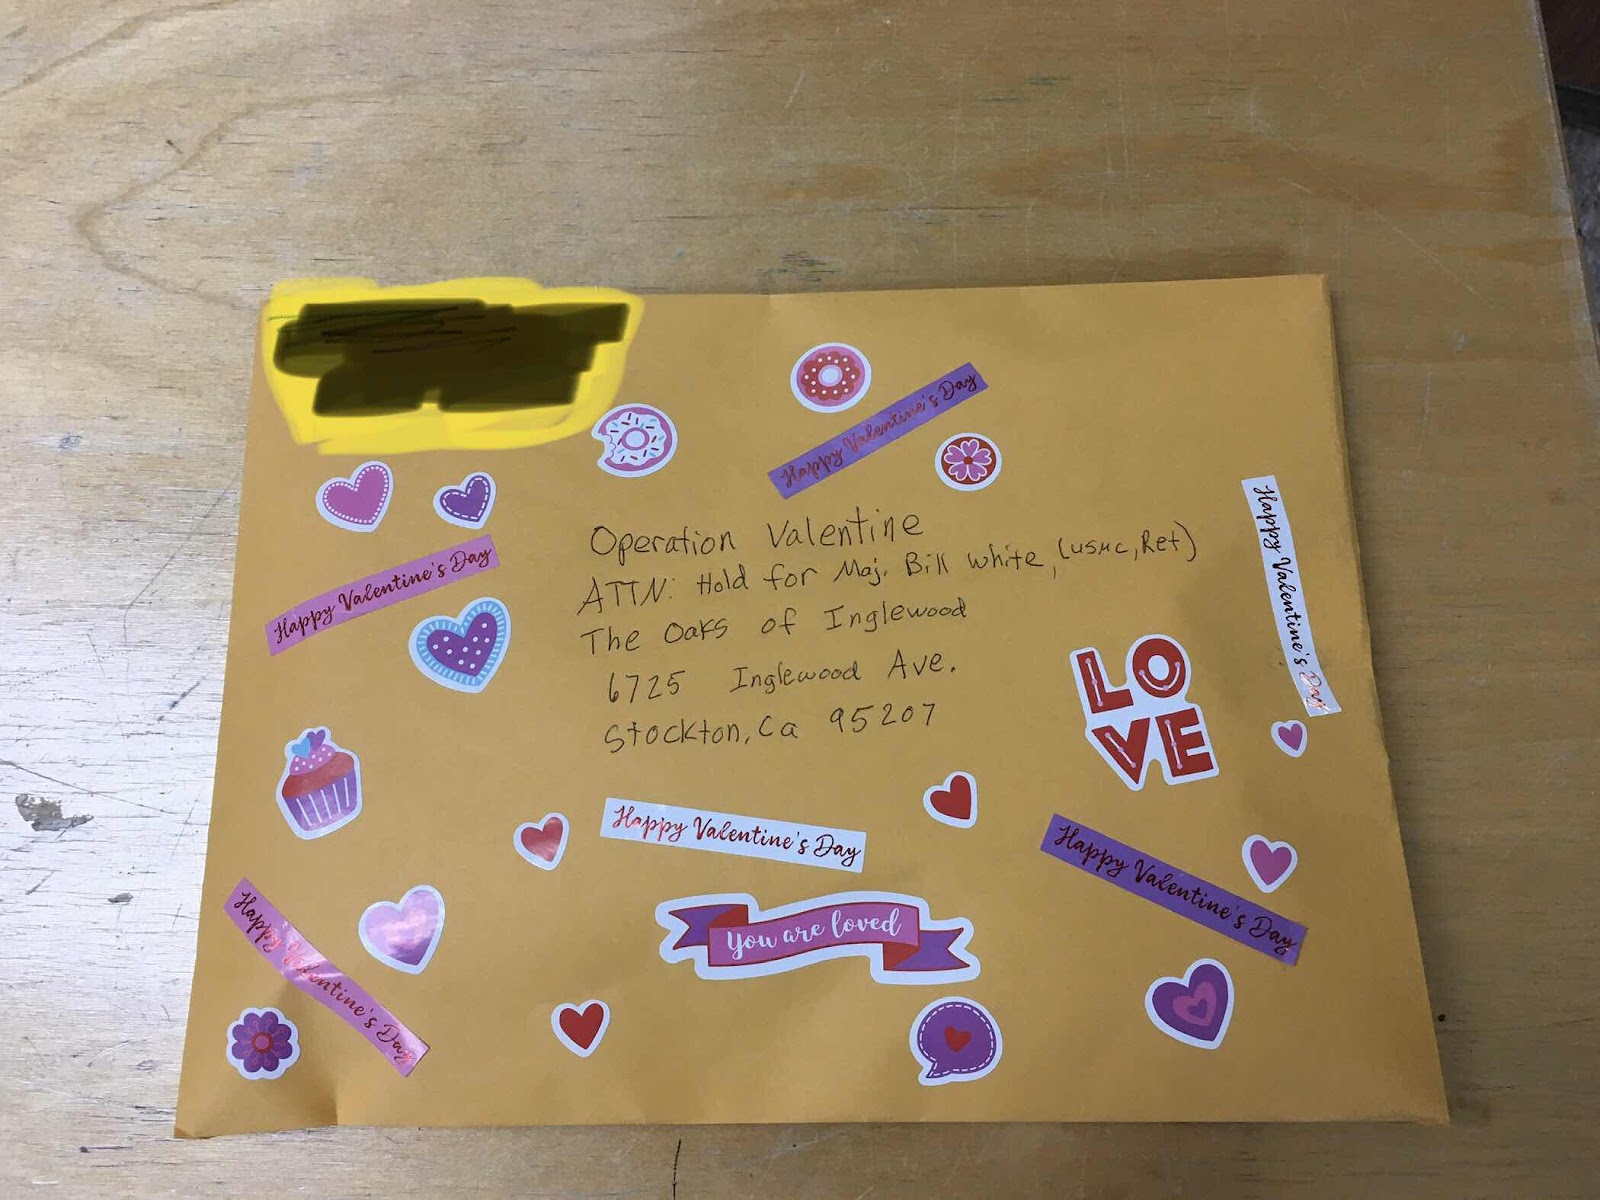 Happy Valentine's Day
Operation Valentine
ATTN: Hold for Maj. Bill White, (USMC, Ret)
The Oaks of Inglewood
6725 Inglewood Ave.
Stockton, Ca 95207
Happy Valentine's Day
Happy Valentine's Day
LO
VE
Happy Valentine's Day
Happy Valentine's Day
You are loved
Happy Valentine's Day